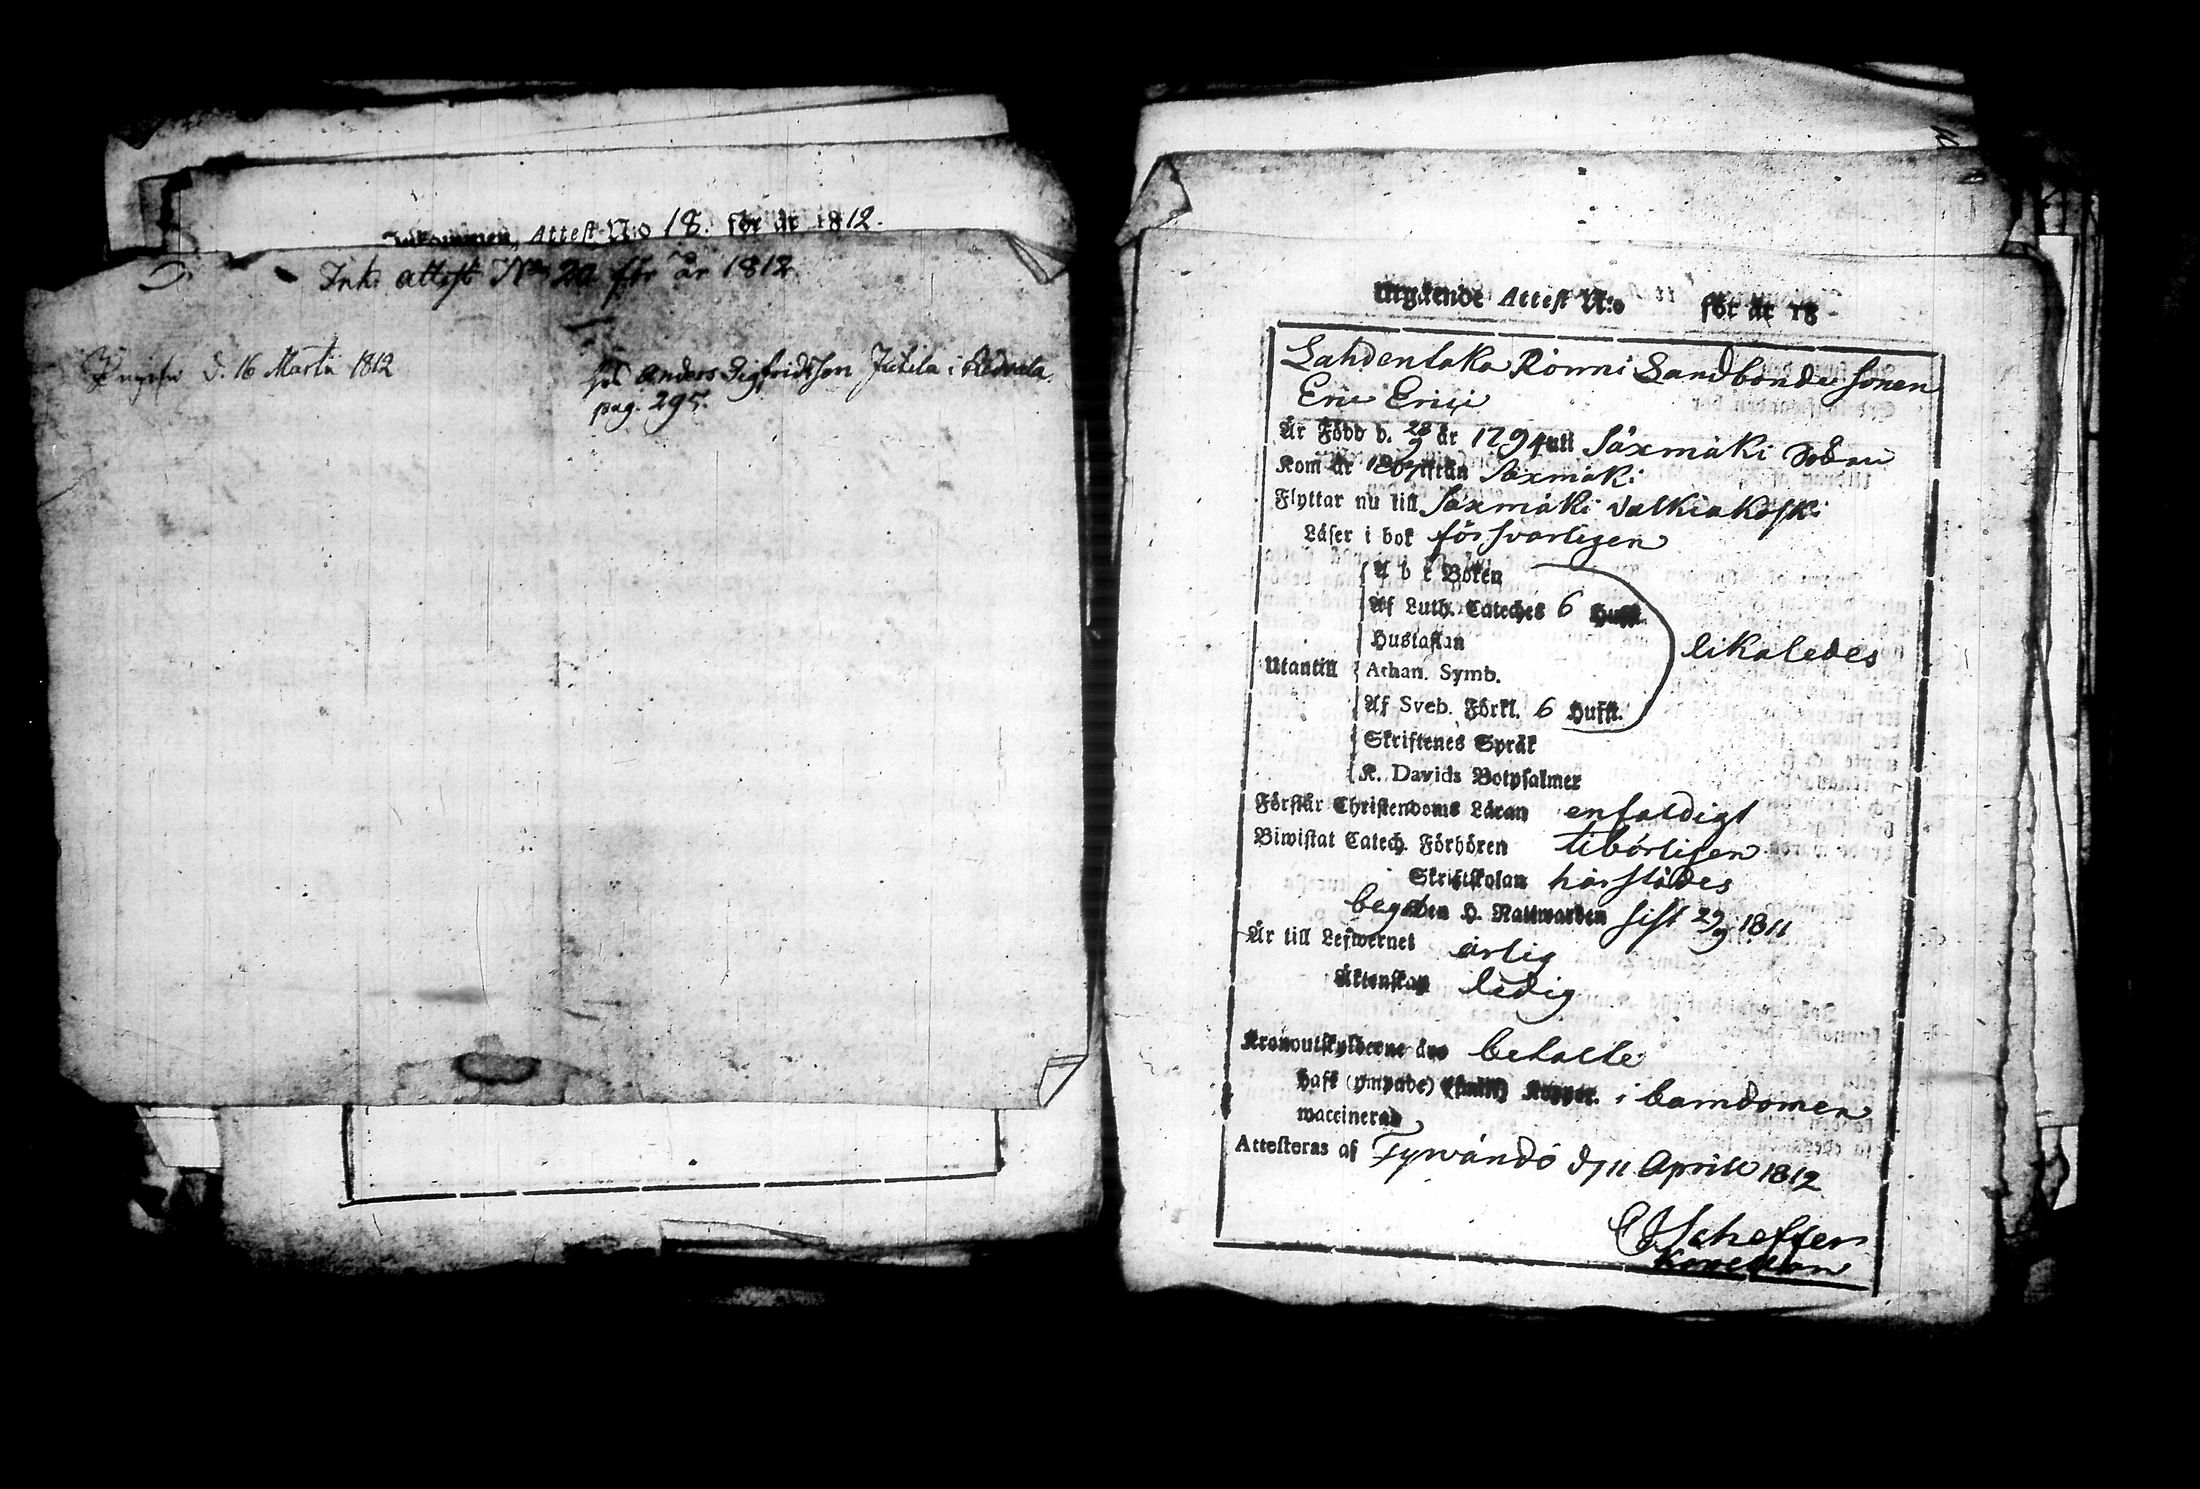 Inkommen, Attest N:o 18. för år 1812.
Ink. attest No 20 för år 1812
d. 16 Martii 1812
hos Anders Sigfridsson Jutila i
pag. 295.
Utgående Attest N:o för år 18
Lahdentaka Rönni Landbonde sonen
Eric Erici
År Född d. 28/9 år 1794 uti Säxmäki Sokn
Kom år 1807 ifrån Säxmäki
Flyttar nu till Säxmäki Valkiakoski
Läser i bok försvarligen
A b c Boken
Af Luth. Cateches 6 Hufst.
Hustaflan
likaledes
Utantill
Athan. Symb.
Af Sveb. Förkl. 6 Hufst.
Skriftenes Språk
K. Davids Botpsalmer
Förstår Christendoms Läran enfaldigt
Biwistat Catech. Förhören tibörligen
Skriftskolan härstädes
begått den H. Nattwarden sist 29/9 1811
År till Lefwernet ärlig
Äktenskap ledig
Kronoutskylderne äro betalte
Haft (ympade) Koppor. i barndomen
waccinerad
Attesteras af Tyrwändö d 11 April 1812
Scheffer